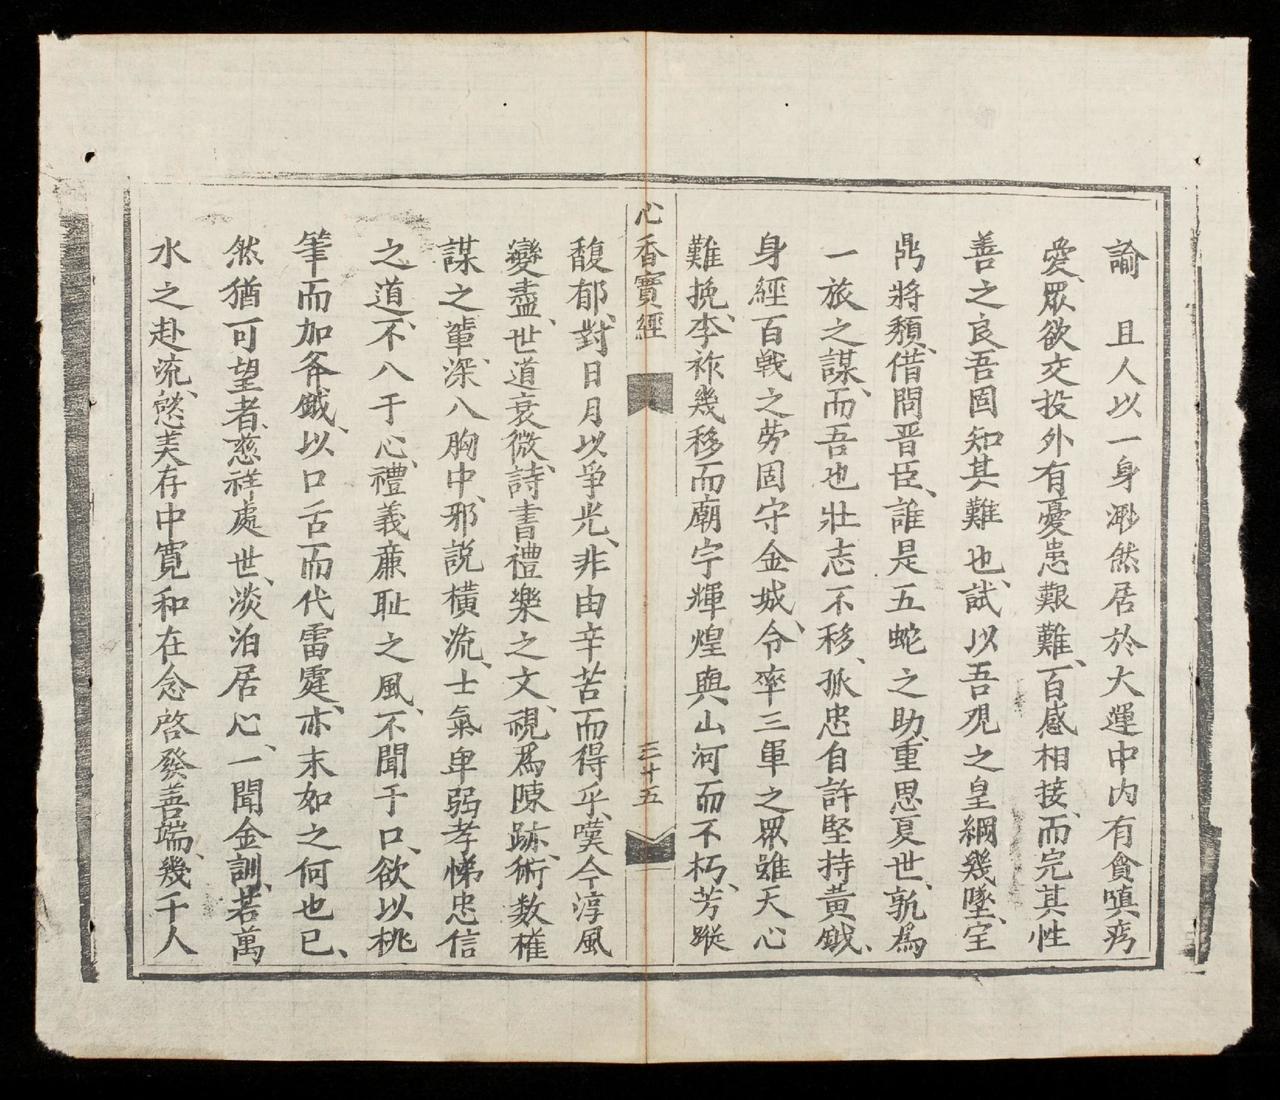 諭　且人以一身渺然居於大運中内有貪嗔痴
愛、眾欲交投外有憂患艱難、百感相接、而完其性
善之良吾固知其難也、試以吾观之皇綱幾墜、宝
鼎將頽、借問晋臣、誰是五蛇之助、重思夏世、孰爲
一旅之謀、而吾也壯志不移、孤忠自許堅持黃鉞、
身經百戰之劳固守金城、令率三軍之眾雖天心
難挽、李祚幾移而廟宇輝煌與山河而不朽、芳蹤
心香寶經
三十五
馥郁、對日月以爭光、非由辛苦而得乎、嘆今淳風
變盡、世道衰微、詩書禮樂之文、視爲陳跡、術数權
謀之輩、深入胸中、邪説橫流、士氣卑弱孝悌忠信
之道、不入于心、禮義亷耻之風、不聞于口、欲以桃
筆而加斧鉞、以口舌而代雷霆、亦末如之何也已、
然猶可望者、慈祥處世、淡泊居心、一聞金訓、若萬
水之赴流、慾美存中寛和在念啓發善端、幾千人